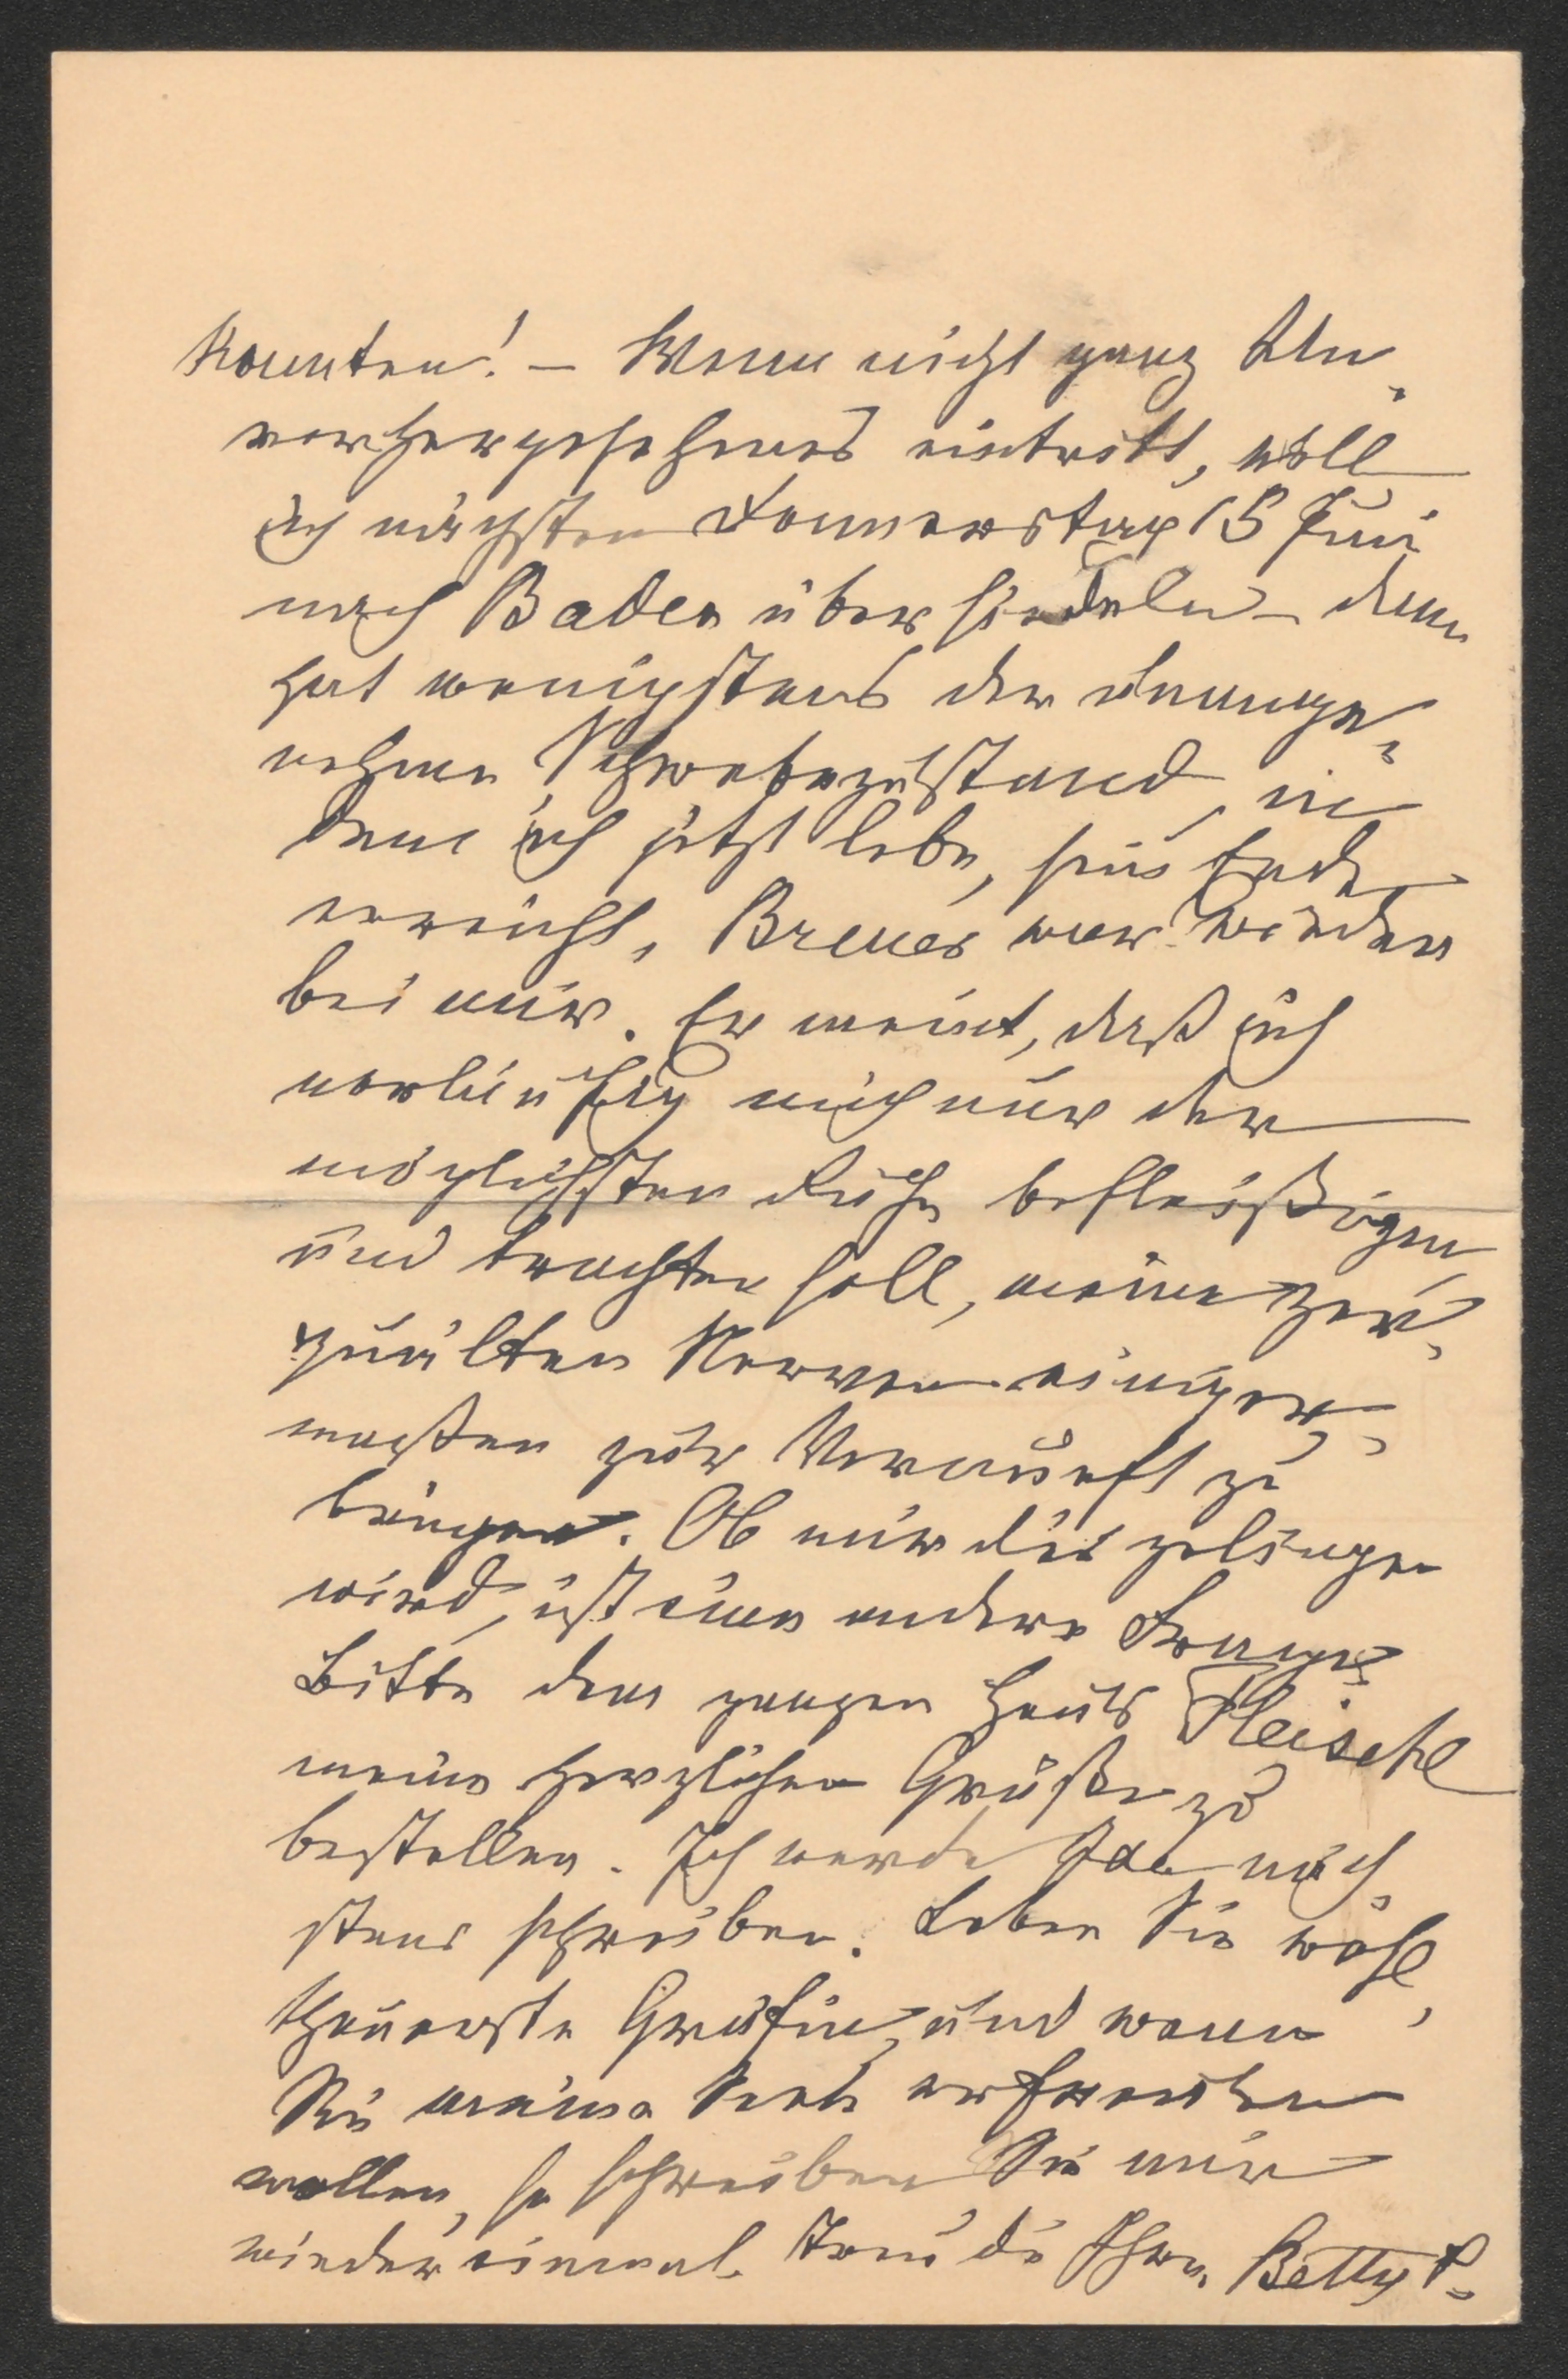 konnten! – Wenn nicht ganz Un-
vorhergesehenes eintritt, will
ich nächsten Donnerstag 15 Juni
nach Baden übersiedeln – dann
hat wenigstens der unange-
nehme Schwebezustand, in
dem ich jetzt lebe, sein Ende
erreicht. Breuer war wieder
bei mir. Er meint, daß ich
vorläufig mich nur der
möglichsten Ruhe befleißigen
und trachten soll, meine zer-
quälten Nerven einiger-
maßen zur Vernunft zu
bringen. Ob mir dies gelingen
wird, ist eine andere Frage.
Bitte dem ganzen Haus Fleischl
meine herzlichen Grüße zu
bestellen. Ich werde Ida näch-
stens schreiben. Leben Sie wohl,
theuerste Gräfin, und wenn
Sie meine Seele erfreuen
wollen, so schreiben Sie mir
wieder einmal. Treu die Ihre. Betty P.